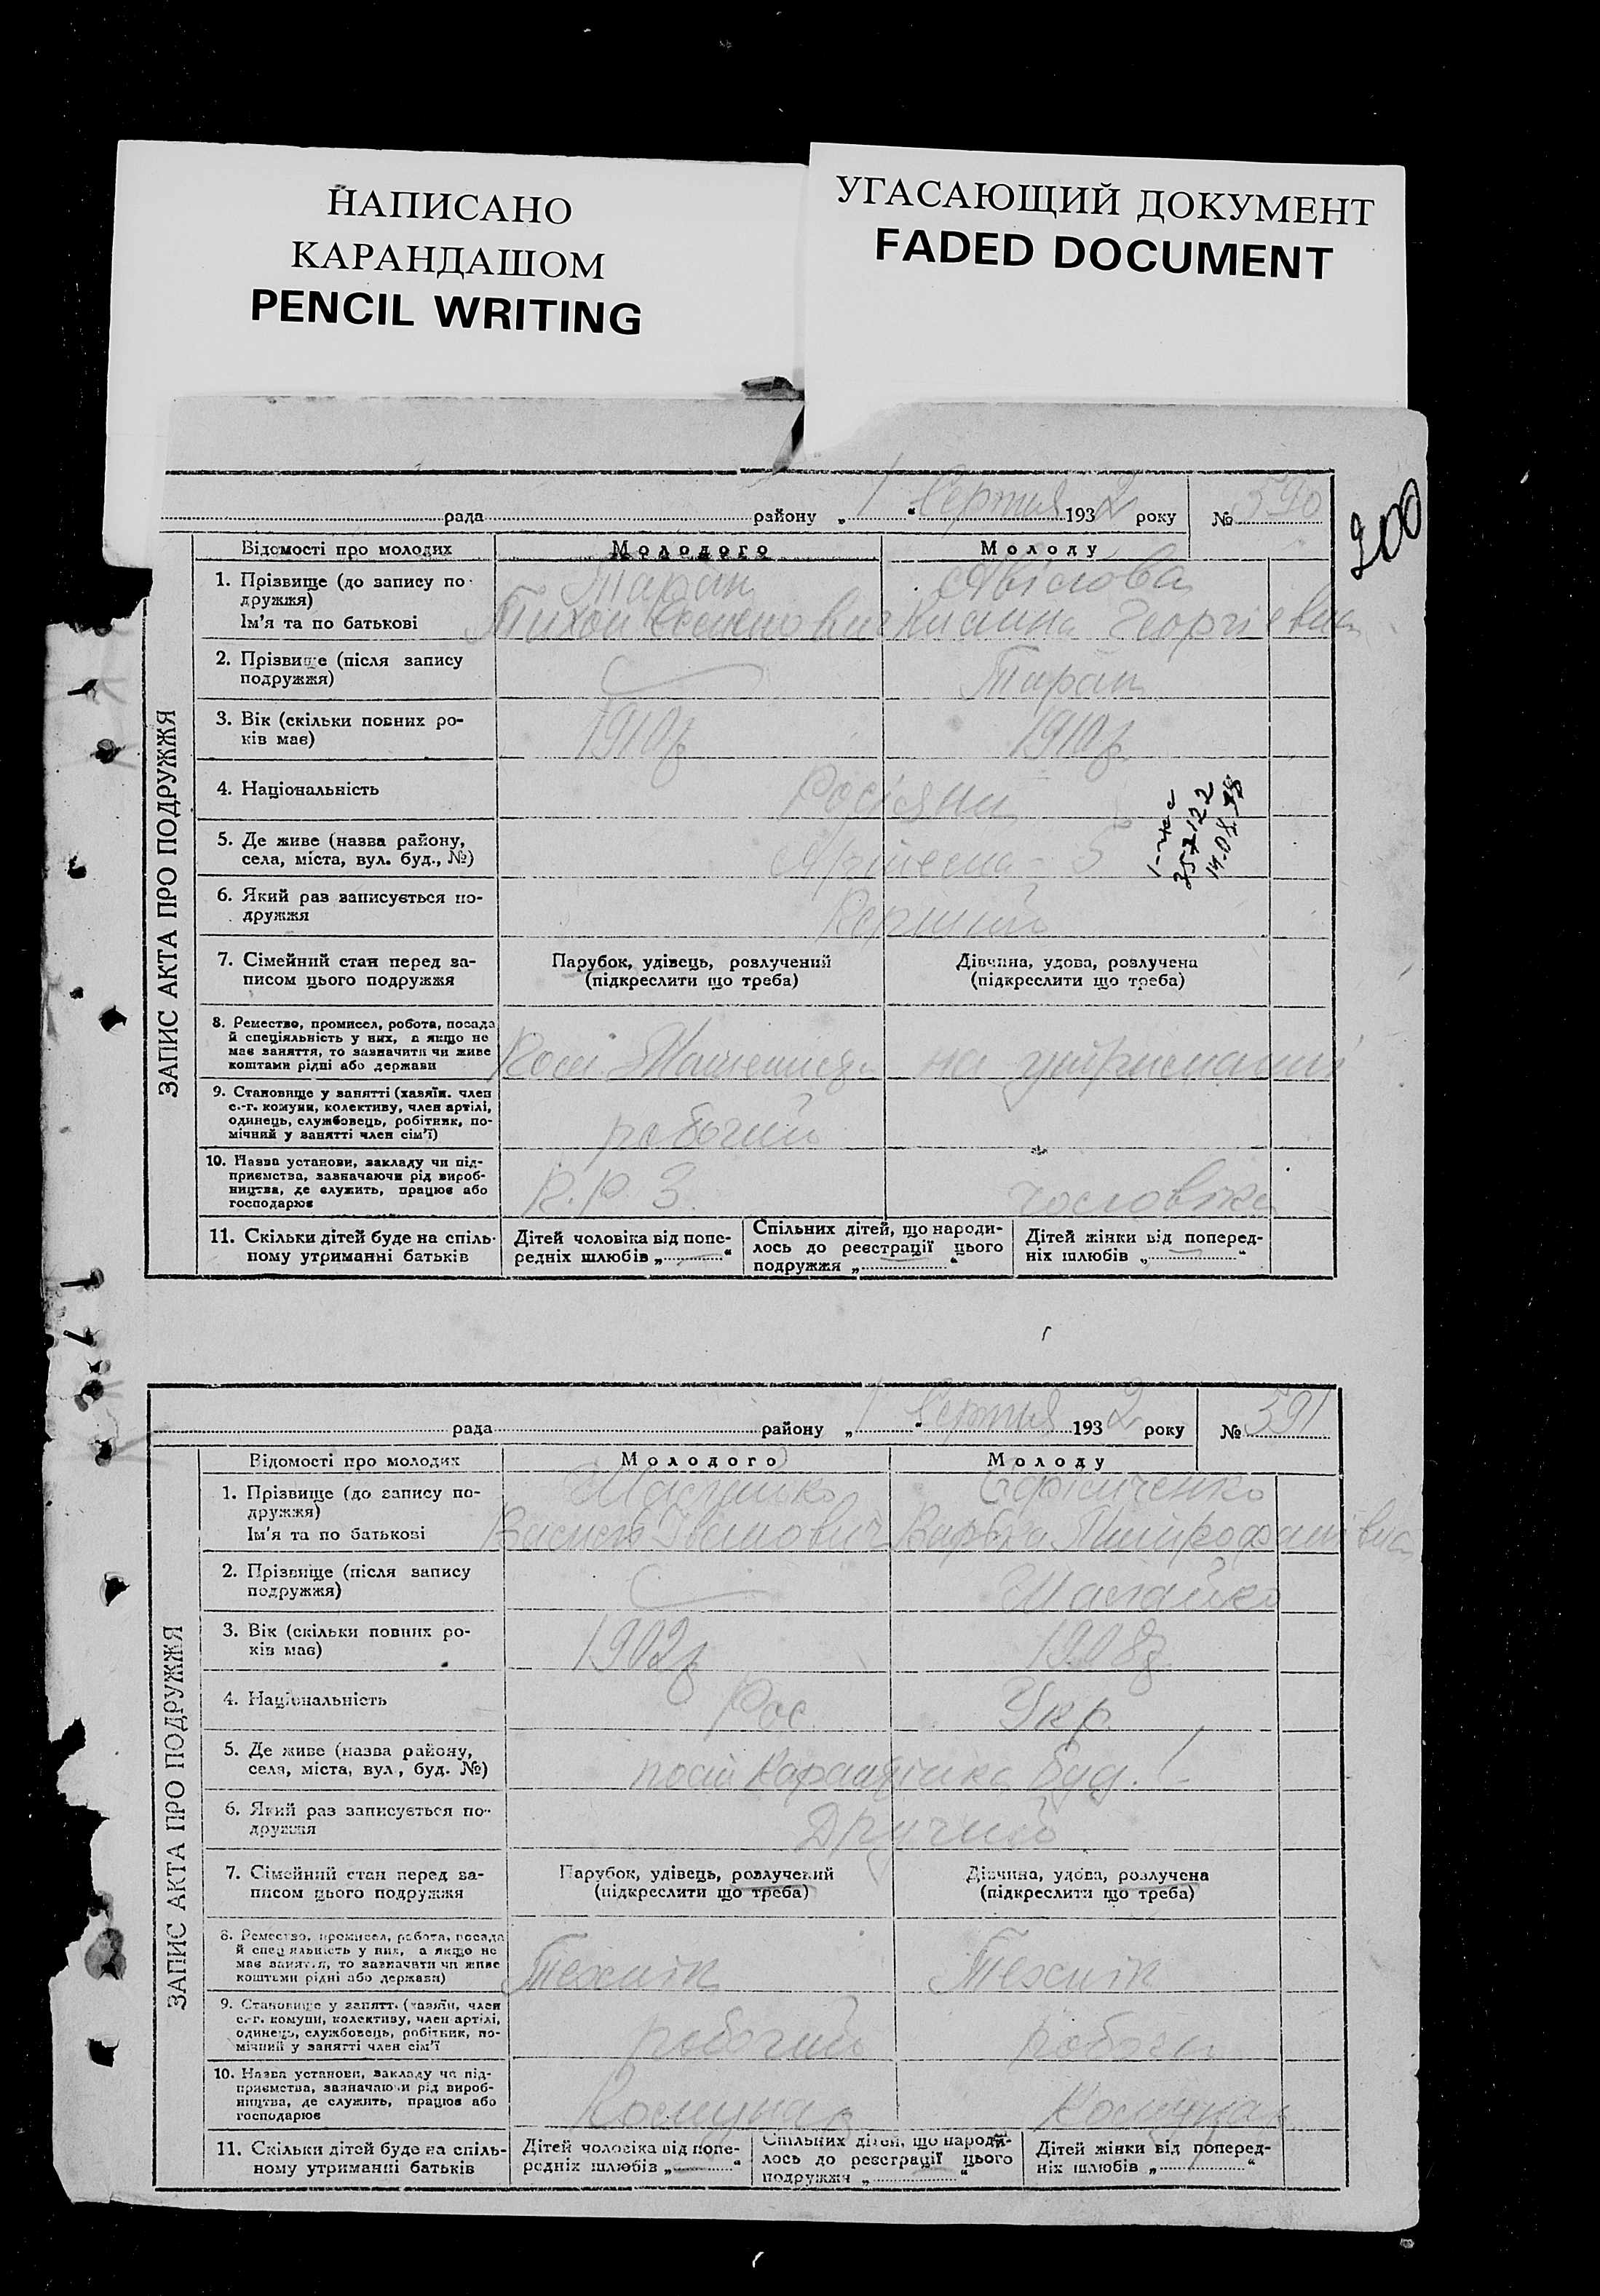 НАПИСАНО
КАРАНДАШОМ
PENCIL WRITING
УГАСАЮЩИЙ ДОКУМЕНТ
FADED DOCUMENT
200
рада района „1“ Серпня 1932 року № 590
ЗАПИС АКТА ПРО ПОДРУЖЖЯ
Відомості про молодих Молодого Молоду
1. Прізвище (до запису по-
дружжя)
Ім'я та по батькові
Таран
Тихон
Авілова
Георгіевна
2. Прізвище (після запису
подружжя)
Таран
3. Вік (скільки повних ро-
ків має)
1910р 1910р
4. Національність
Росіяни
5. Де живе (назва району,
села, міста, вул. буд., №)
Артема - 5
6. Який раз записується по-
дружжя
Перший
7. Сімейний стан перед за-
писом цього подружжя
Парубок, удівець, розлучений
(підкреслити що треба)
Дівчина, удова, розлучена
(підкреслити що треба)
8. Ремество, промисел, робота, посада
й спеціяльність у них, а якщо не
має заняття, то зазначити чи живе
коштами рідні або держави
на утриманні
9. Становище у занятті (хазяїн. член
с.-г. комуни, колективу, член артілі,
одинець, службовець, робітник, по-
мічний у занятті член сім'ї)
робочий
10. Назва установи, закладу чи під-
приємства, зазначаючи рід вироб-
ництва, де служить, працює або
господарює
К.Р.З. чоловіка
11. Скільки дітей буде на спіль-
ному утриманні батьків
Дітей чоловіка від попе-
редніх шлюбів „ “
Спільних дітей, що народи-
лось до реєстрації цього
подружжя „ “
Дітей жінки від поперед-
ніх шлюбів „ “
рада району „1“ Серпня 1932 року № 591
ЗАПИС АКТА ПРО ПОДРУЖЖЯ
Відомості про молодих Молодого Молоду
1. Прізвище (до запису по-
дружжя)
Ім'я та по батькові
Іванович
Варвара Митрофанівна
2. Прізвище (після запису
подружжя)
3. Вік (скільки повних ро-
ків має)
1902р 1908р
4. Національність
Рос Укр
5. Де живе (назва району,
села, міста, вул, буд. №)
буд. 1
6. Який раз записується по-
дружжя
Другий
7. Сімейний стан перед за-
писом цього подружжя
Парубок, удівець, розлучений
(підкреслити що треба)
Дівчина, удова, розлучена
(підкреслити що треба)
8. Ремество, промисел, робота, посада
й спеціяльність у них, а якщо не
має заняття, то зазначити чи живе
коштами рідні або держави)
Технік Технік
9. Становище у занятт. (хазяїн, член
с.-г. комуни, колективу, член артілі,
одинець, службовець, робітник, по-
мічний у занятті член сім'ї
робочий
10. Назва установи, закладу чи під-
приємства, зазначаючи рід вироб-
ництва, де служить, працює або
господарює
11. Скільки дітей буде на спіль-
ному утриманні батьків
Дітей чоловіка від попе-
редніх шлюбів „ “
Спільних дітей, що народи-
лось до реєстрації цього
подружжя „ “
Дітей жінки від поперед-
ніх шлюбів „ “